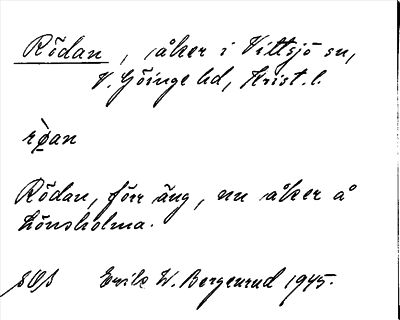 Rödan, åker i Vittsjö sn,
V. Göinge hd, Krist. l.
rø̀an
Rödan, förr äng, nu åker å
Lönsholma.
Erik W. Bergenrud 1945.